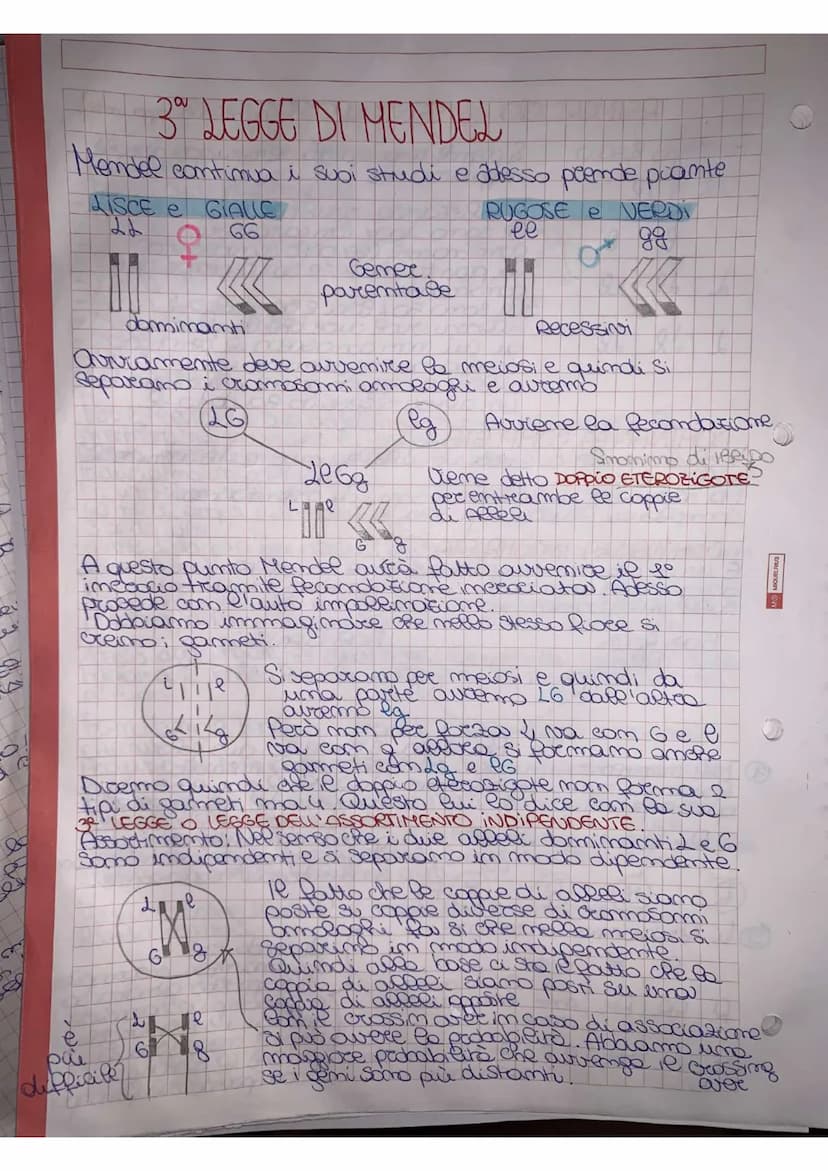 3ª LEGGE DI MENDEL
Mendel continua i suoi studi e adesso prende piante
LISCE e GIALLE RUGOSE e VERDI
LL ♀ GG ll ♂ gg
Gener.
parentale
dominanti Recessivi
Ovviamente deve avvenire la meiosi e quindi si
separano i cromosomi omologhi e avremo
LG lg Avviene la fecondazione
Sinonimo di ibrido
LlGg Viene detto DOPPIO ETEROZIGOTE
per entrambe le coppie
di Alleli
L l
G g
A questo punto Mendel avrà fatto avvenire il 1º
incrocio tramite fecondazione incrociata. Adesso
procede con l'auto impollinazione.
Dobbiamo immaginare che nello stesso fiore si
creino i gameti.
L l Si separano per meiosi e quindi da
una parte avremo LG dall'altra
avremo lg
G g Però non per forza L va con G e l
va con g allora si formano anche
gameti con Lg e lG
Diremo quindi che il doppio eterozigote non forma 2
tipi di gameti ma 4. Questo lui lo dice con la sua
3ª LEGGE O LEGGE DELL'ASSORTIMENTO INDIPENDENTE.
Assortimento: Nel senso che i due alleli dominanti L e G
sono indipendenti e si separano in modo dipendente.
L l
G g
Il fatto che le coppie di alleli siano
poste su coppie diverse di cromosomi
omologhi fa si che nella meiosi si
separino in modo indipendente.
Quindi alla base ci sta il fatto che la
coppia di alleli siano posti su una
coppia di alleli opposte
L l
G g
è
più
difficile
Con il crossin over in caso di associazione
si può avere la probabilità. Abbiamo una
maggiore probabilità che avvenga il crossing
over
se i geni sono più distanti.